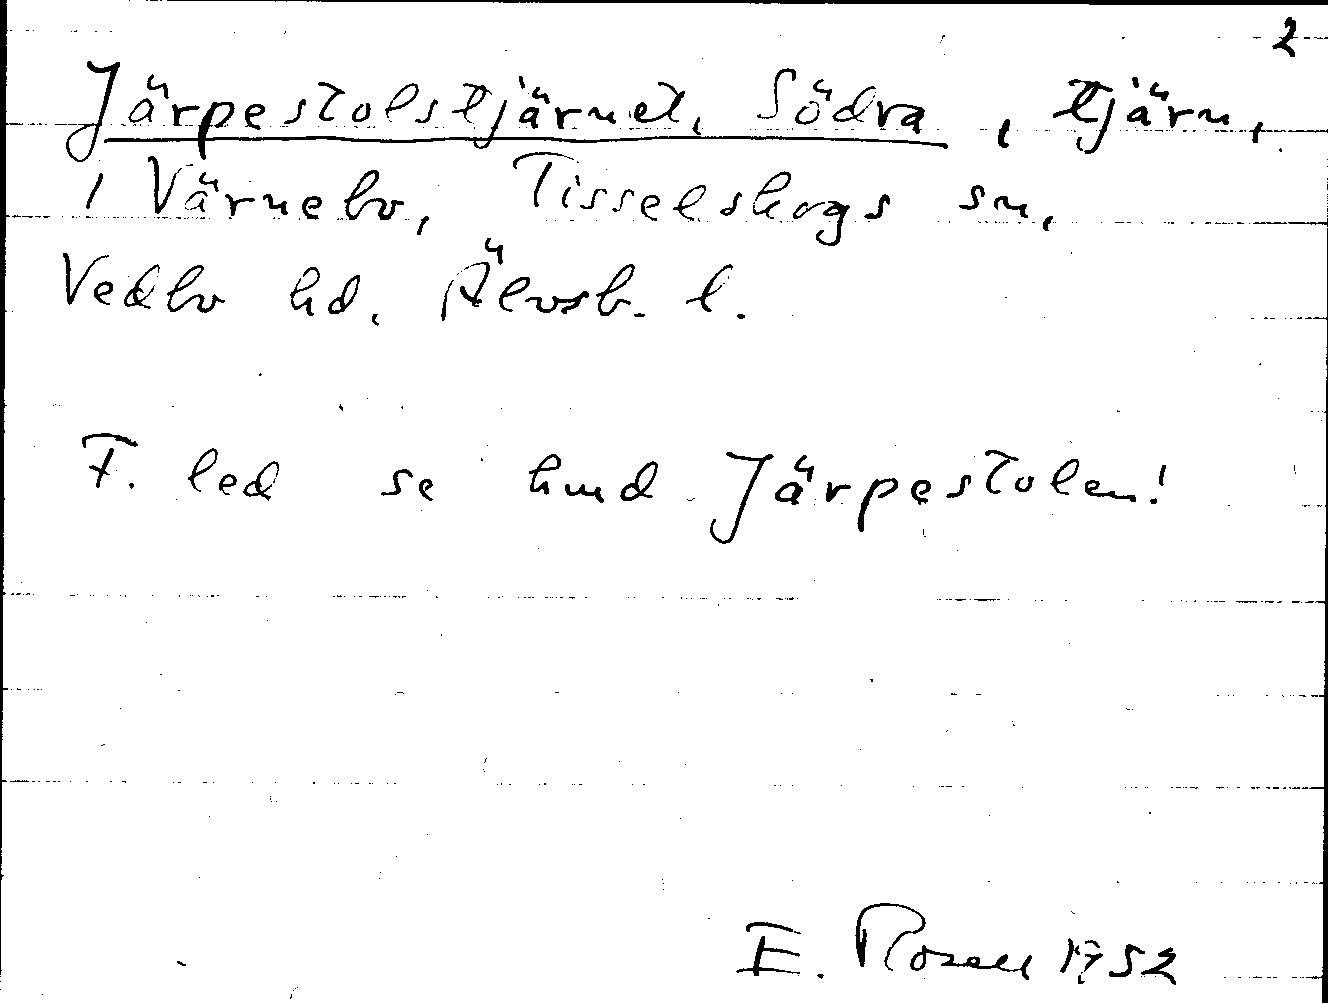 2
Järpestolstjärnet, Södra, tjärn,
i Värnebo, Tisselskogs sn,
Vedbo hd, Älvsb. l.
F. led se hmd Järpestolen!
E. Rosell 1952